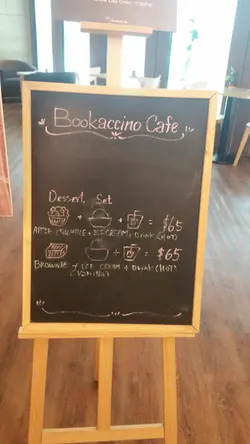 Bookaccino Cafe
Dessert Set
+ + = $65
APPLE CRUMBLE + ICE CREAM + Drink (HOT)
+ + = $65
BROWNIE + ICE CREAM + Drink (HOT)
(VANILLA)